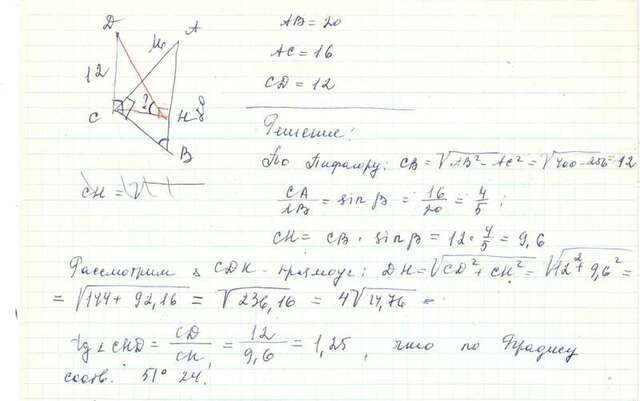 AB = 20
AC = 16
CD = 12
Решение:
По Пифагору: CB = √AB² - AC² = √400 - 256 = 12
CA/AB = sin β = 16/20 = 4/5;
CH = CB · sin β = 12 · 4/5 = 9,6
Рассмотрим Δ CDH - прямоуг: DH = √CD² + CH² = √12² + 9,6² =
= √144 + 92,16 = √236,16 = 4√14,76 =
tg ∠ CHD = CD/CH = 12/9,6 = 1,25, что по Брадису
соотв. 51° 24'.
D
A
16
12
C
?
H
8
B
CH = √